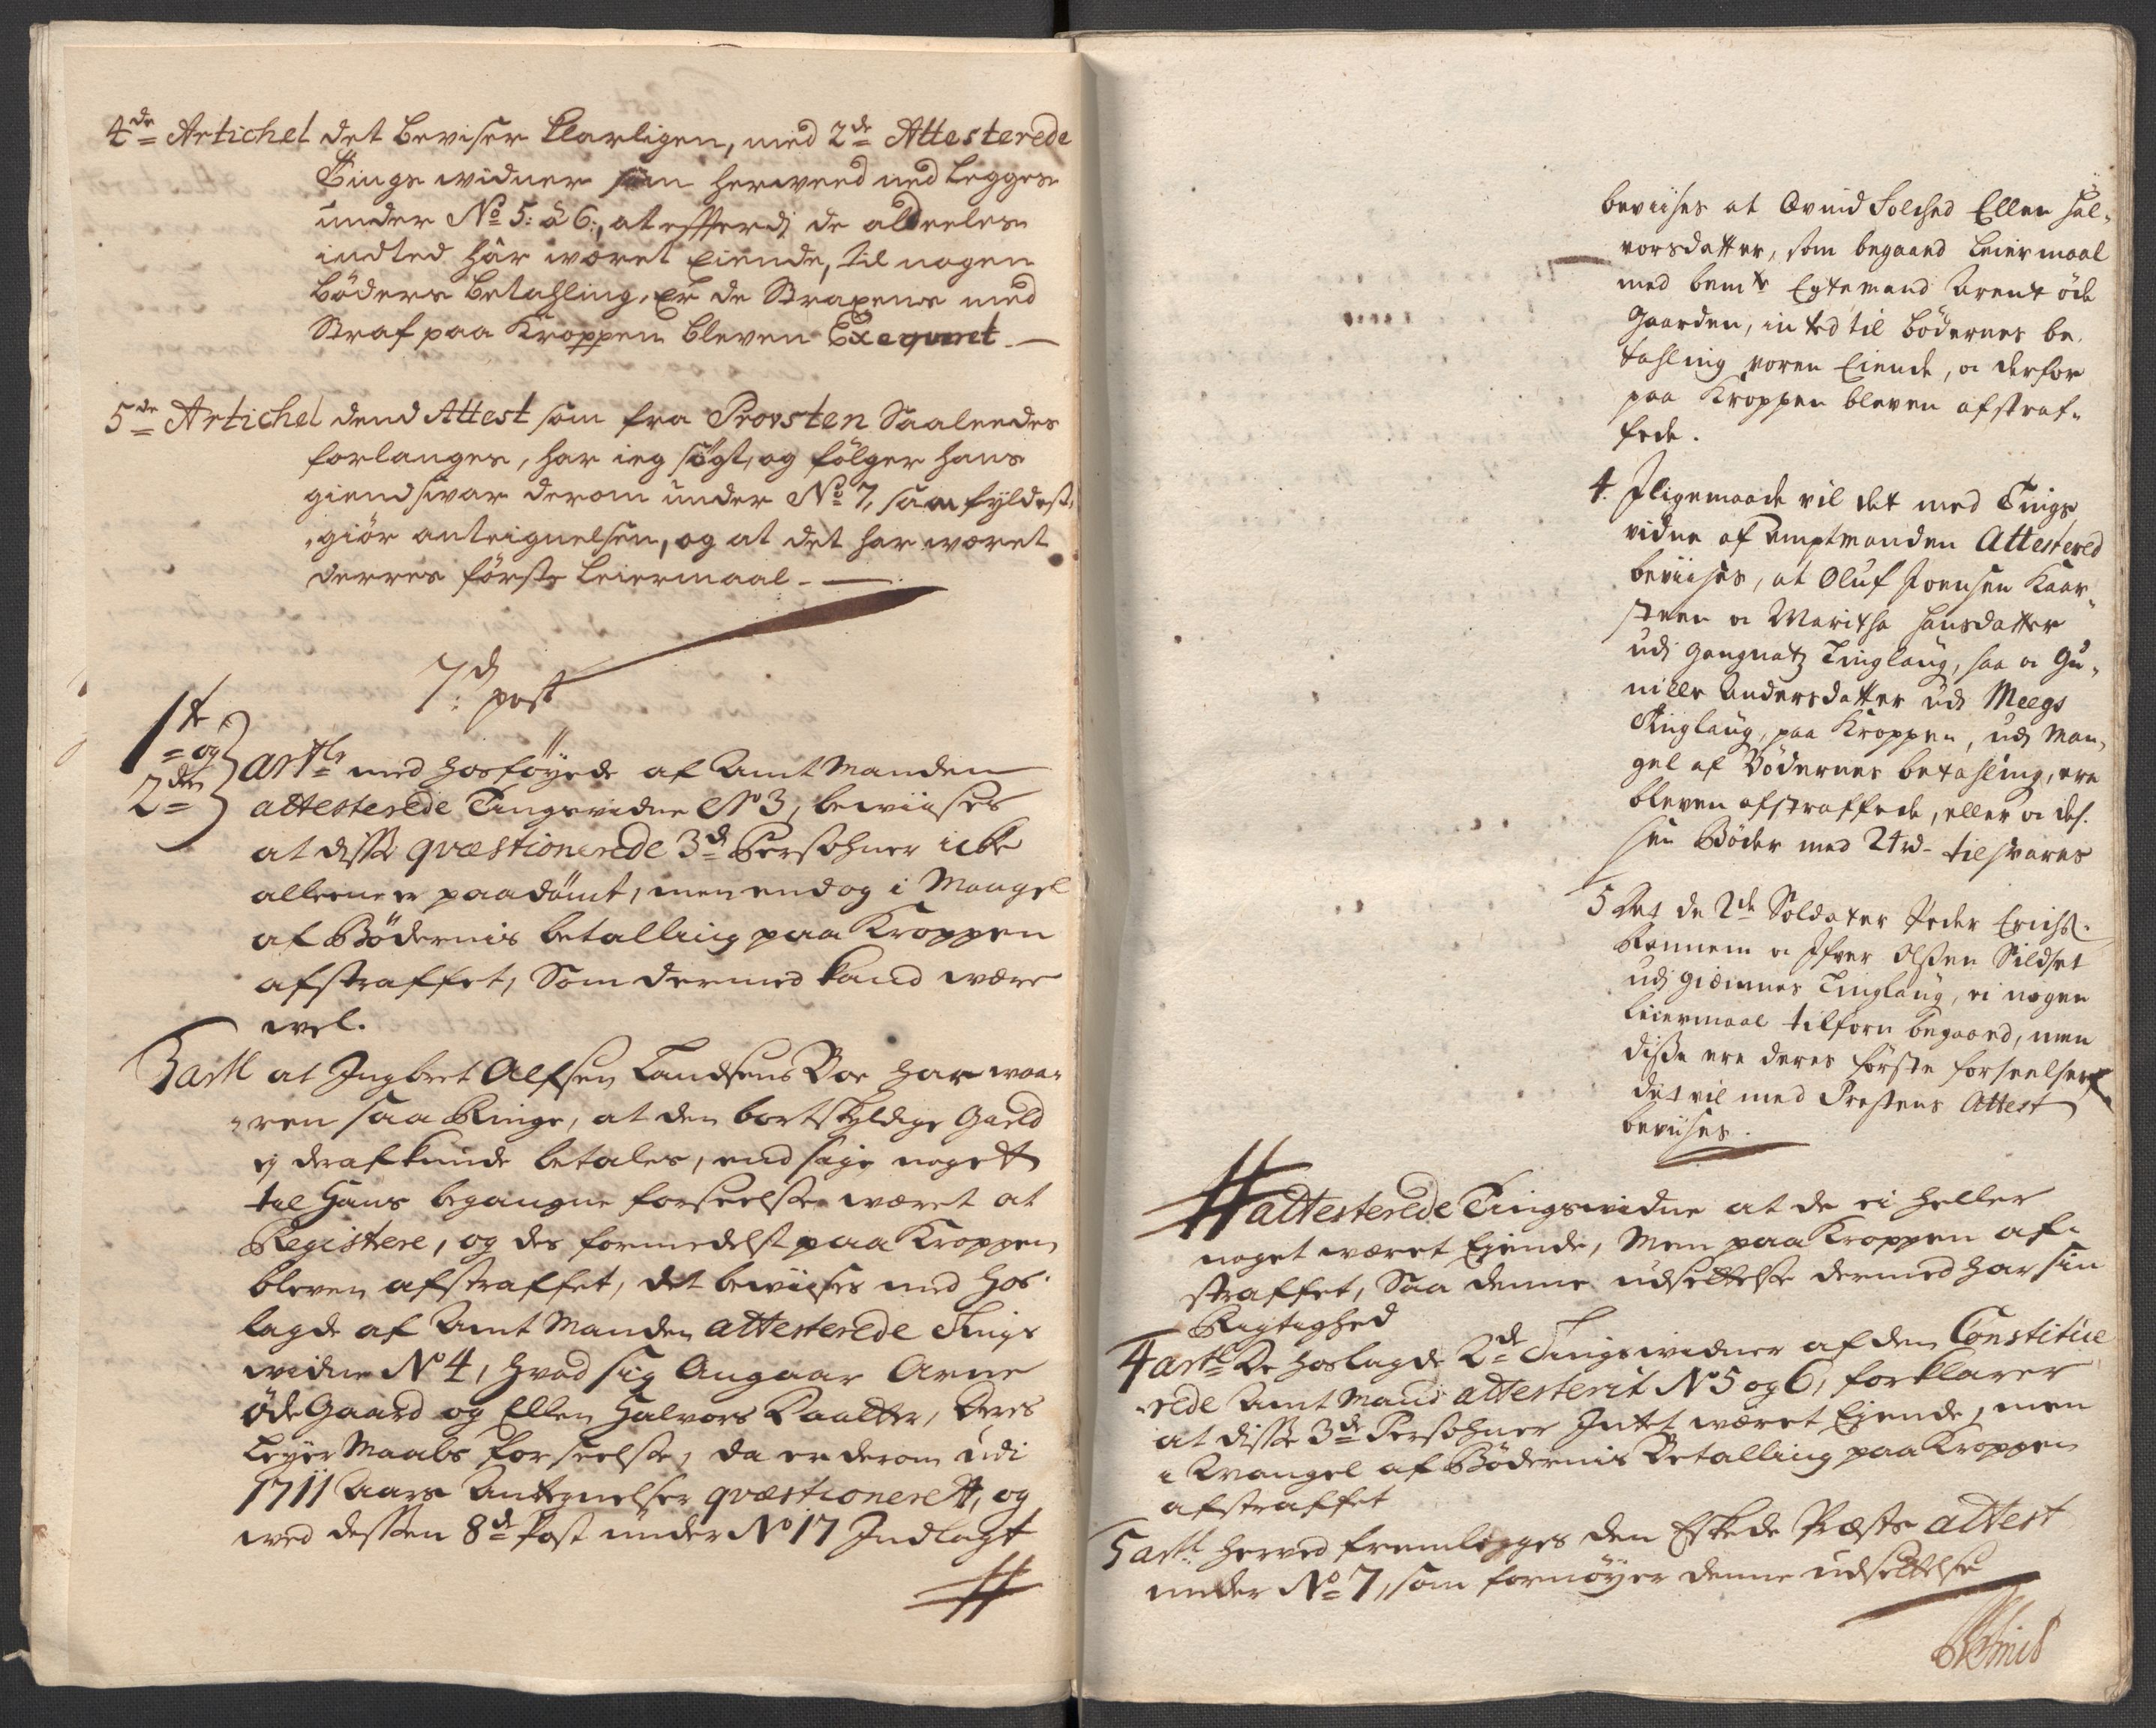 4de Artichel det beviser klarligen, med 2de Attesterede
Tings widner som herwed ned legges
under No 5: à 6:, at effterdj de aldeeles
indted hàr wæret Eiende, til nogen
bøders betahling, Er de Straxens med
Straf paa Kroppen bleven Exeqveret
5de Artichel dend Attest som fra Provsten Saaleedes
forlanges, har ieg søgt, og følger hans
giensvar derom under No 7, som fyldest
giør anteignelsen, og at det har wæret
derres første leiermaal
7d post
1te og
2den artle med hosføyede af Amt Manden
attesterede Tingswidne No 3, bewiises
at disse qvæstionerede 3de Persohner icke
alleene er paadømt, men endog i Mangel
af Bødernis betalling paa Kroppen
afstraffet, Som dermed kand være
wel.
3 artl at Ingbret Alfsen Landsens Boe har waa
ren saa Ringe, at den bortskyldige Gield
ej deraf kunde betales, end sige noget
til Hans begangne forseelse wæret at
Registere, og des formedelst paa Kroppen
bleven afstraffet, det bewiises med hos
lagde af Amt Manden attesterede Tings
widne No 4, hvad sig Angaar Arne
ødeGaard og Ellen Halvors Daatter, deres
LeyerMaals forseelse, da er derom udi
1711 Aars Antegnelser qvæstioneret, og
wed dessen 8de Post under No 17 Indlagt
beviises at Qvind folched Ellen Hal-
vorsdatter, som begaaed Leiermaal
med bemte Egtemand Arent øde
Gaarden, inted til bødernes be-
tahling voren Eiende, er derfor
paa Kroppen bleven afstraf-
fede.
4. Iligemaade vil det med Tings
vidne af Amptmanden Attestered
beviises, at Oluf Joensen Kaar
steen oc Maritha Hansdatter
udj Tinglaug, saa oc Gu-
nille Andersdatter udj Meegs
Tinglaug, paa Kroppen, udj Man-
gel af Bødernes betahling, ere
bleven afstraffede, eller oc des-
sen Bøder med 24 rd- tilsvares
5 At de 2de Soldater Peder Erichs.
Rannem oc Ifver Olssen Sildset
udj Tinglaug, ei nogen
Leiermaal tilforn begaaed, men
disse ere deres første forseelser
det vil med Prestens Attest
beviises.
attesterede Tingswidne at de ei heller
noget wæret Ejende, Men paa Kroppen af-
straffet, Saa denne udsettelse dermed har sin
Rigtighed
4 artl De hoslagde 2de Tingswidner af den Constitue
rede Amt Mand attesterit No 5 og 6, forklarer
at disse 3de Persohner Intet wæret Ejende, men
i Mangel af Bødernis Betalling paa Kroppen
afstraffet
5 artl herved fremlegges den Eskede Præste attest
under No 7, som fornøyer denne udsettelse